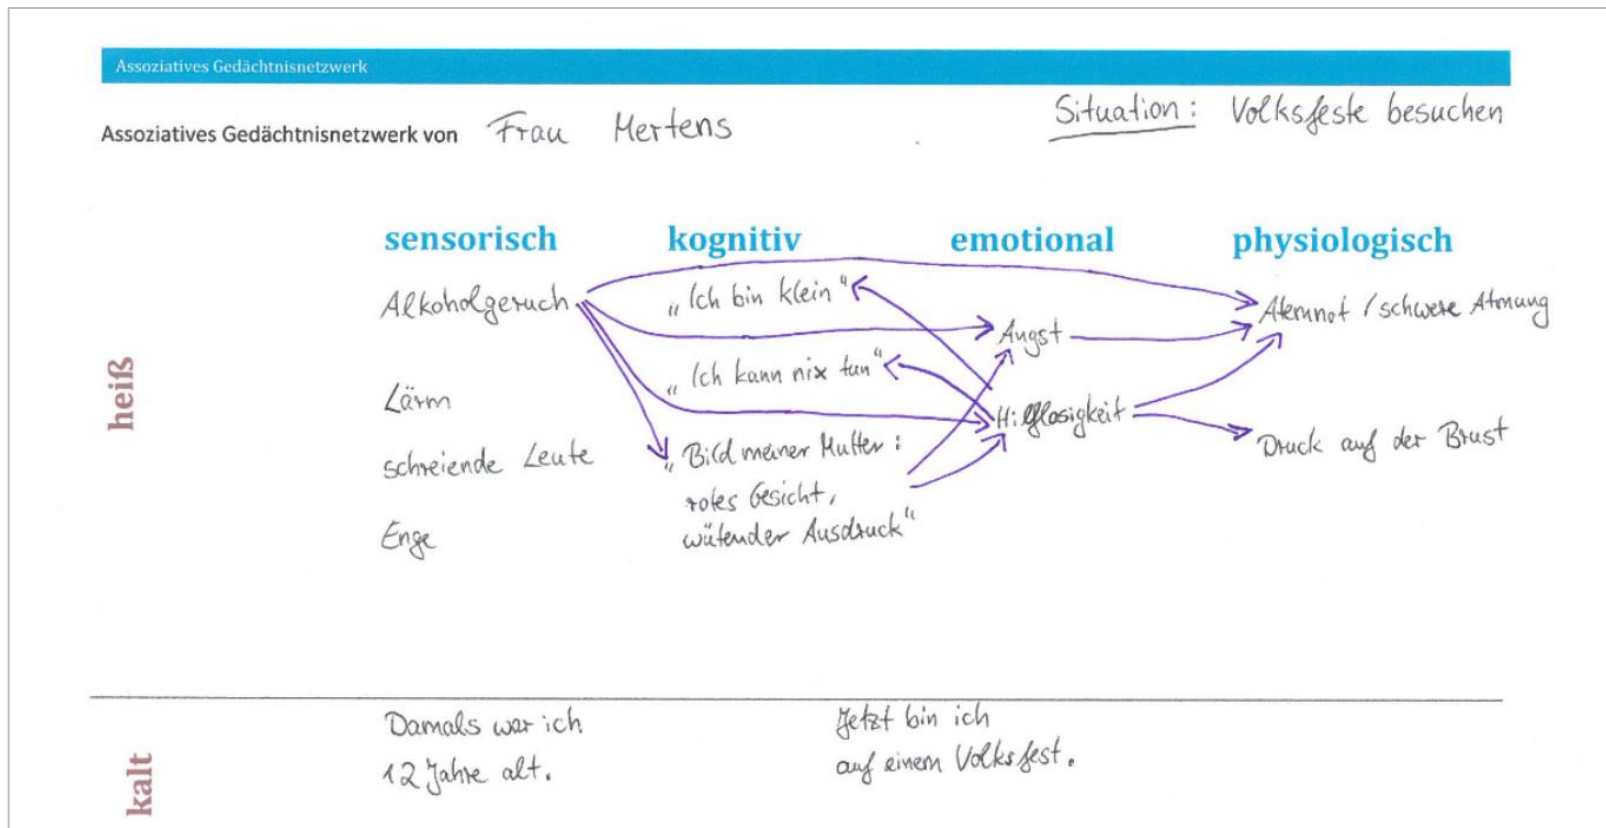 Assoziatives Gedächtnisnetzwerk
Assoziatives Gedächtnisnetzwerk von Frau Mertens
Situation: Volksfeste besuchen
sensorisch kognitiv emotional physiologisch
heiß
Alkoholgeruch
Lärm
schreiende Leute
Enge
„Ich bin klein“
„Ich kann nix tun“
„Bild meiner Mutter:
rotes Gesicht,
wütender Ausdruck“
Angst
Hilflosigkeit
Atemnot / schwere Atmung
Druck auf der Brust
kalt
Damals war ich
12 Jahre alt.
Jetzt bin ich
auf einem Volksfest.